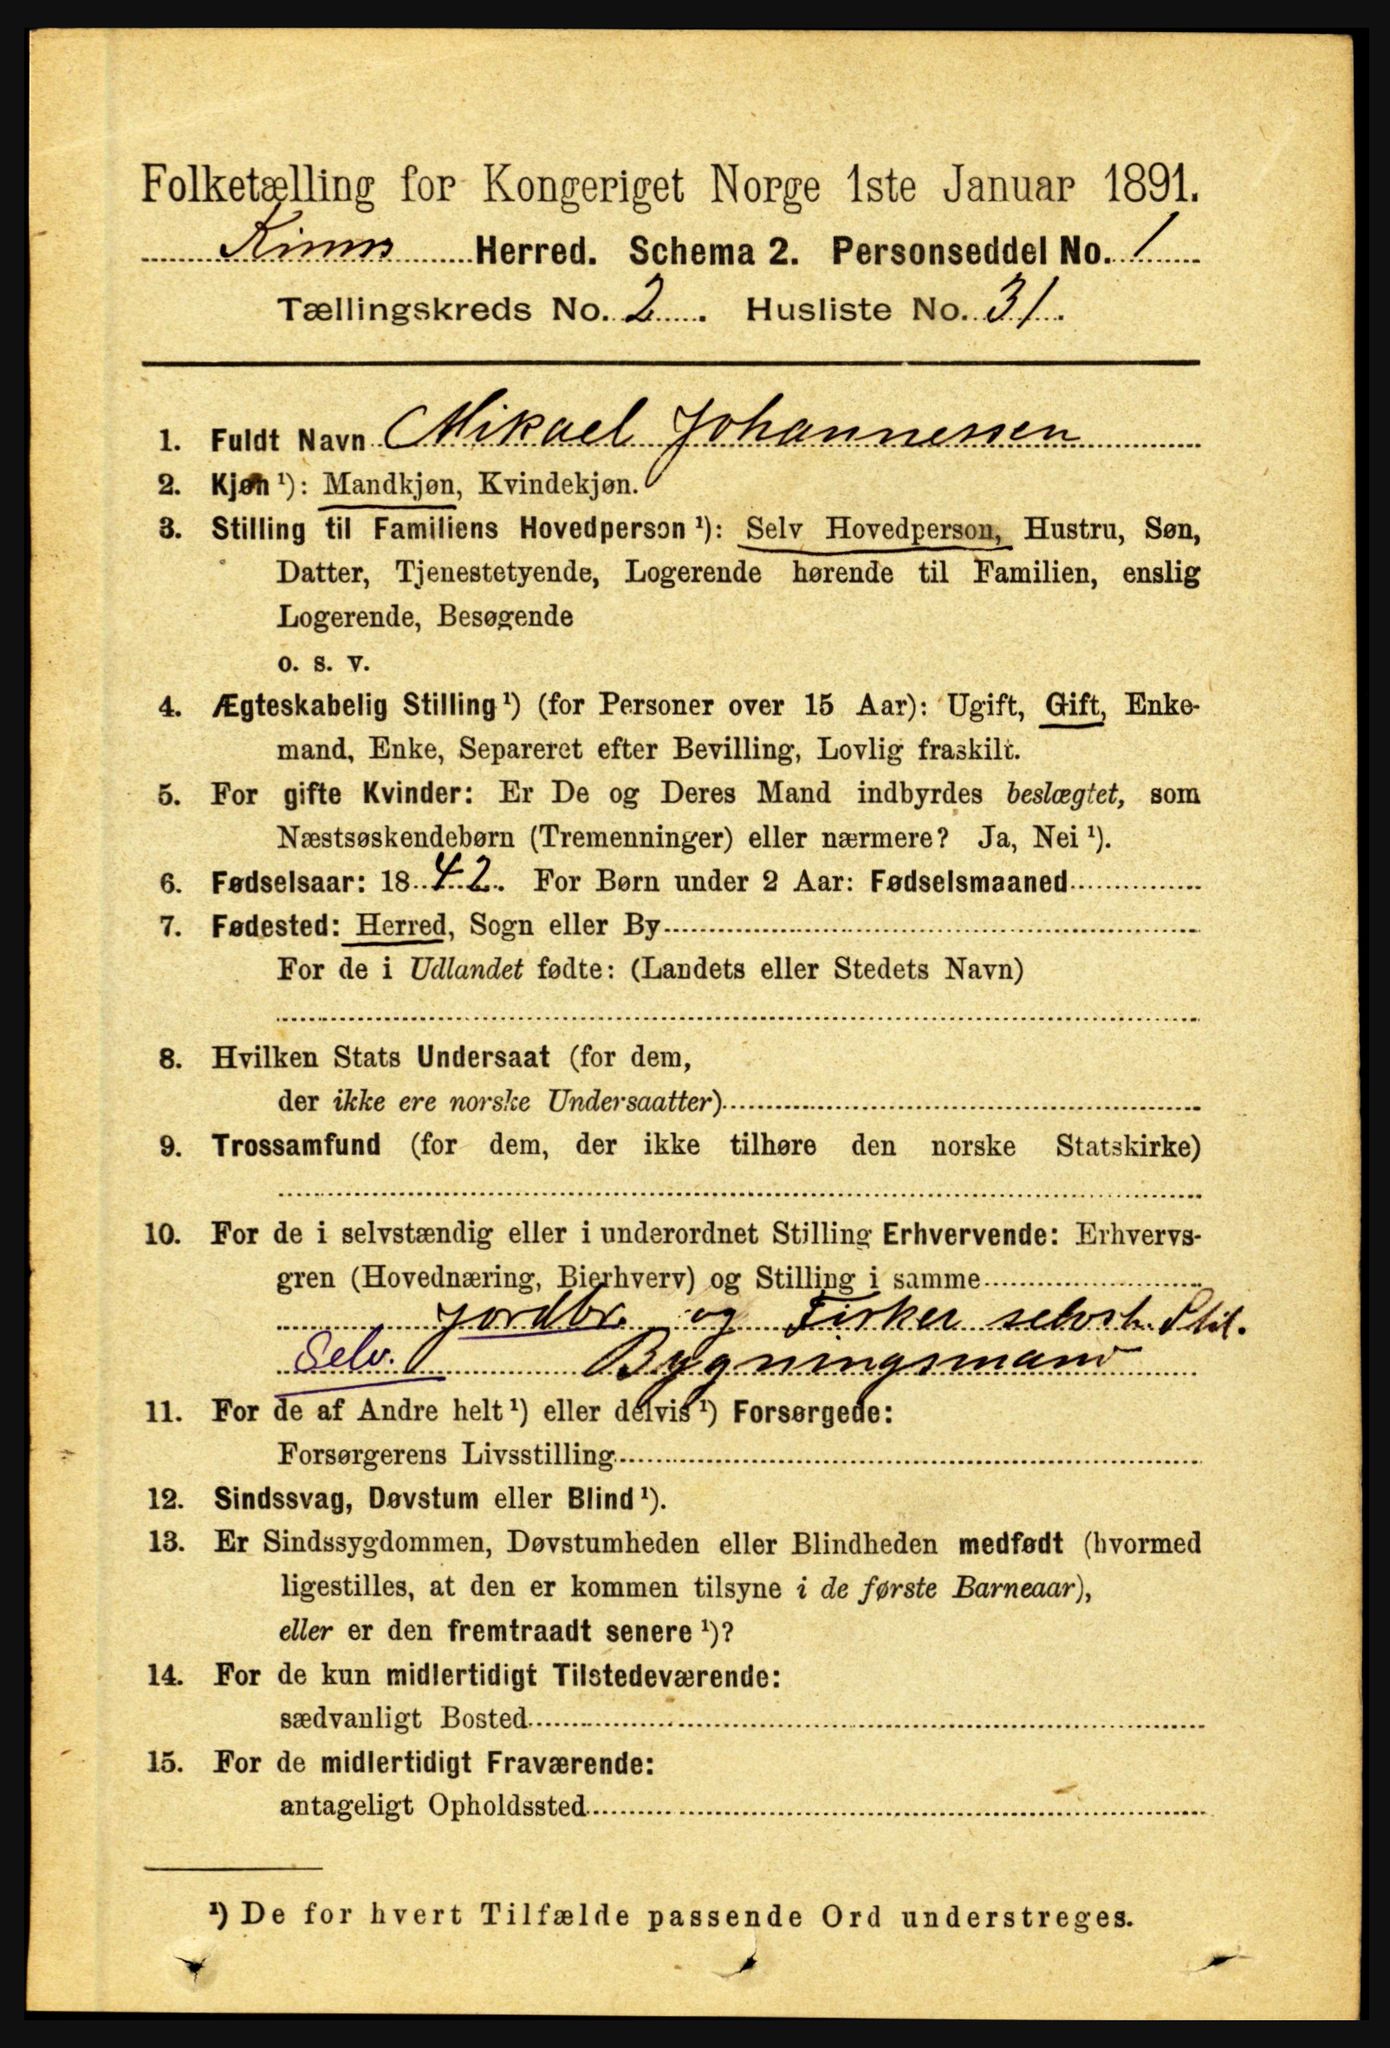 Folketælling for Kongeriget Norge 1ste Januar 1891.
Kinns Herred. Schema 2. Personseddel No. 1
Tællingskreds No. 2. Husliste No. 31.
1. Fuldt Navn Mikael Johannessen
2. Kjøn ¹): Mandkjøn, Kvindekjøn.
3. Stilling til Familiens Hovedperson ¹): Selv Hovedperson, Hustru, Søn,
Datter, Tjenestetyende, Logerende hørende til Familien, enslig
Logerende, Besøgende
o. s. v.
4. Ægteskabelig Stilling ¹) (for Personer over 15 Aar): Ugift, Gift, Enke-
mand, Enke, Separeret efter Bevilling, Lovlig fraskilt.
5. For gifte Kvinder: Er De og Deres Mand indbyrdes beslægtet, som
Næstsøskendebørn (Tremenninger) eller nærmere? Ja, Nei ¹).
6. Fødselsaar: 1842. For Børn under 2 Aar: Fødselsmaaned
7. Fødested: Herred, Sogn eller By
For de i Udlandet fødte: (Landets eller Stedets Navn)
8. Hvilken Stats Undersaat (for dem,
der ikke ere norske Undersaatter)
9. Trossamfund (for dem, der ikke tilhøre den norske Statskirke)
10. For de i selvstændig eller i underordnet Stilling Erhvervende: Erhvervs-
gren (Hovednæring, Bierhverv) og Stilling i samme
jordbr. og Fisker selvst. Stil.
Selv. Bygningsmand
11. For de af Andre helt ¹) eller delvis ¹) Forsørgede:
Forsørgerens Livsstilling
12. Sindssvag, Døvstum eller Blind ¹).
13. Er Sindssygdommen, Døvstumheden eller Blindheden medfødt (hvormed
ligestilles, at den er kommen tilsyne i de første Barneaar),
eller er den fremtraadt senere ¹)?
14. For de kun midlertidigt Tilstedeværende:
sædvanligt Bosted
15. For de midlertidigt Fraværende:
antageligt Opholdssted
¹) De for hvert Tilfælde passende Ord understreges.